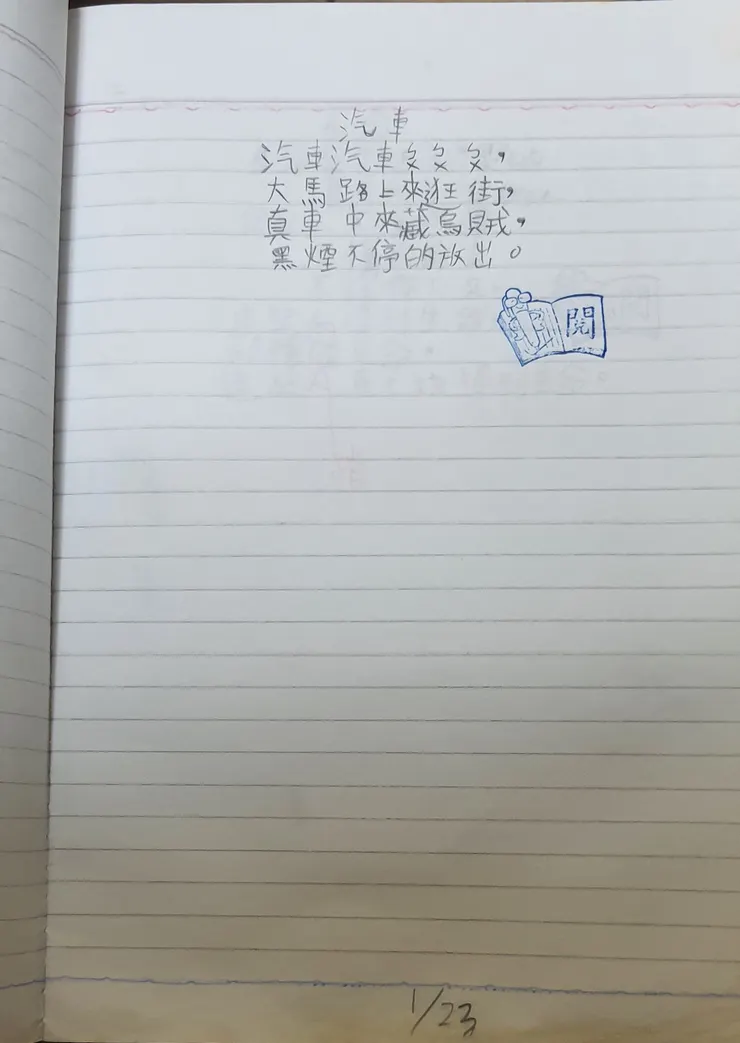 汽車
汽車汽車ㄆㄆㄆ，
大馬路上來逛街，
真車中來藏烏賊，
黑煙不停的放出。
閱
1/23